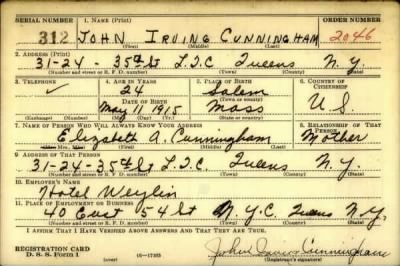 SERIAL NUMBER 1. NAME (Print) ORDER NUMBER
312 JOHN IRVING CUNNINGHAM 2046
(First) (Middle) (Last)
2. ADDRESS (Print)
31-24 - 35th St L.I.C. Queens N.Y.
(Number and street or R. F. D. number) (Town) (County) (State)
3. TELEPHONE 4. AGE IN YEARS 5. PLACE OF BIRTH 6. COUNTRY OF CITIZENSHIP
✓ 24 Salem
DATE OF BIRTH (Town or county)
May 11 1915 Mass U.S.
7. NAME OF PERSON WHO WILL ALWAYS KNOW YOUR ADDRESS 8. RELATIONSHIP OF THAT PERSON
Elizabeth A. Cunningham Mother
9. ADDRESS OF THAT PERSON
31-24-35th St L.I.C. Queens N.Y.
(Number and street or R. F. D. number) (Town) (County) (State)
10. EMPLOYER'S NAME
Hotel Weylin
11. PLACE OF EMPLOYMENT OR BUSINESS
40 East 54 St N.Y.C. N.Y.
(Number and street or R. F. D. number) (Town) (County) (State)
I AFFIRM THAT I HAVE VERIFIED ABOVE ANSWERS AND THAT THEY ARE TRUE.
REGISTRATION CARD
D. S. S. Form 1 (over) 16—17105 John Irving Cunningham
(Registrant's signature)